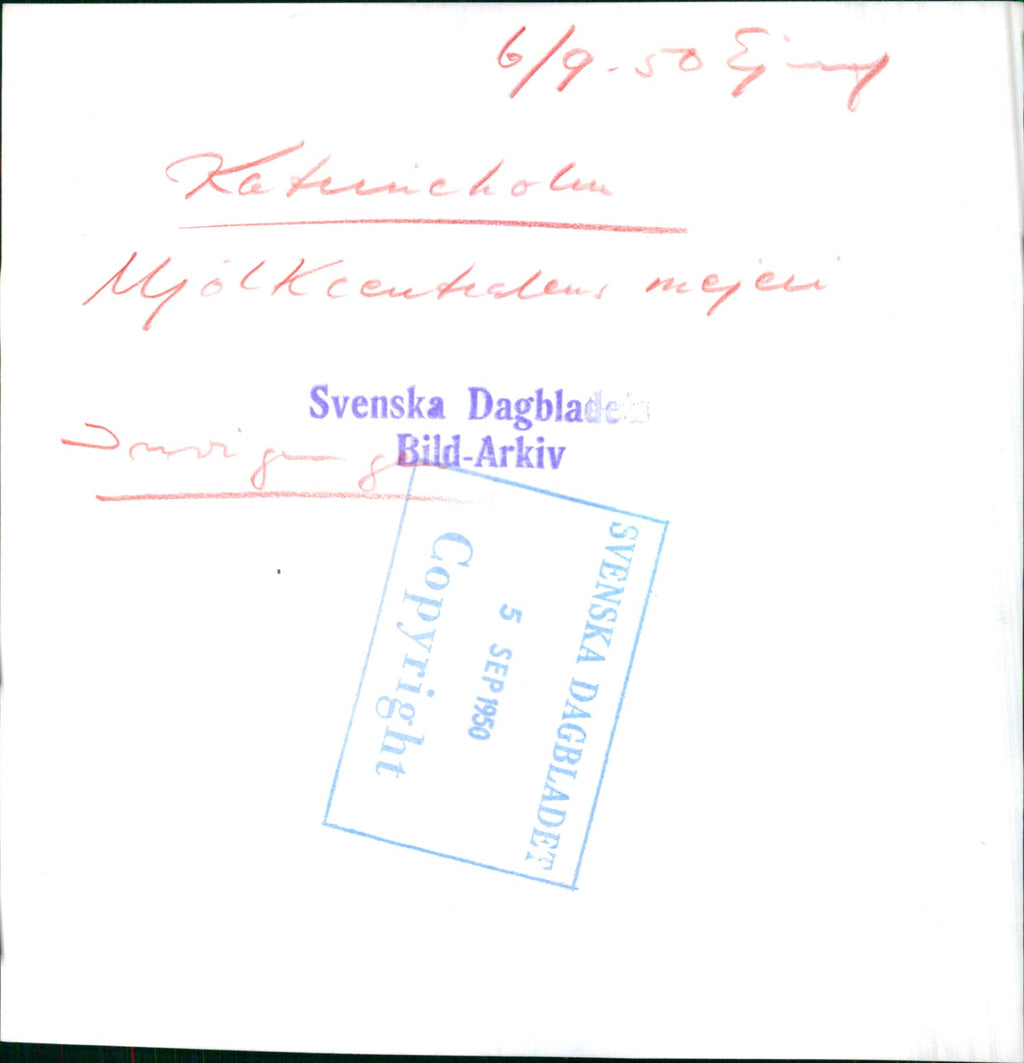 6/9-50
Katrineholm
Mjölkcentralens mejeri
Svenska Dagbladets
Bild-Arkiv
Invigning
SVENSKA DAGBLADET
5 SEP 1950
Copyright